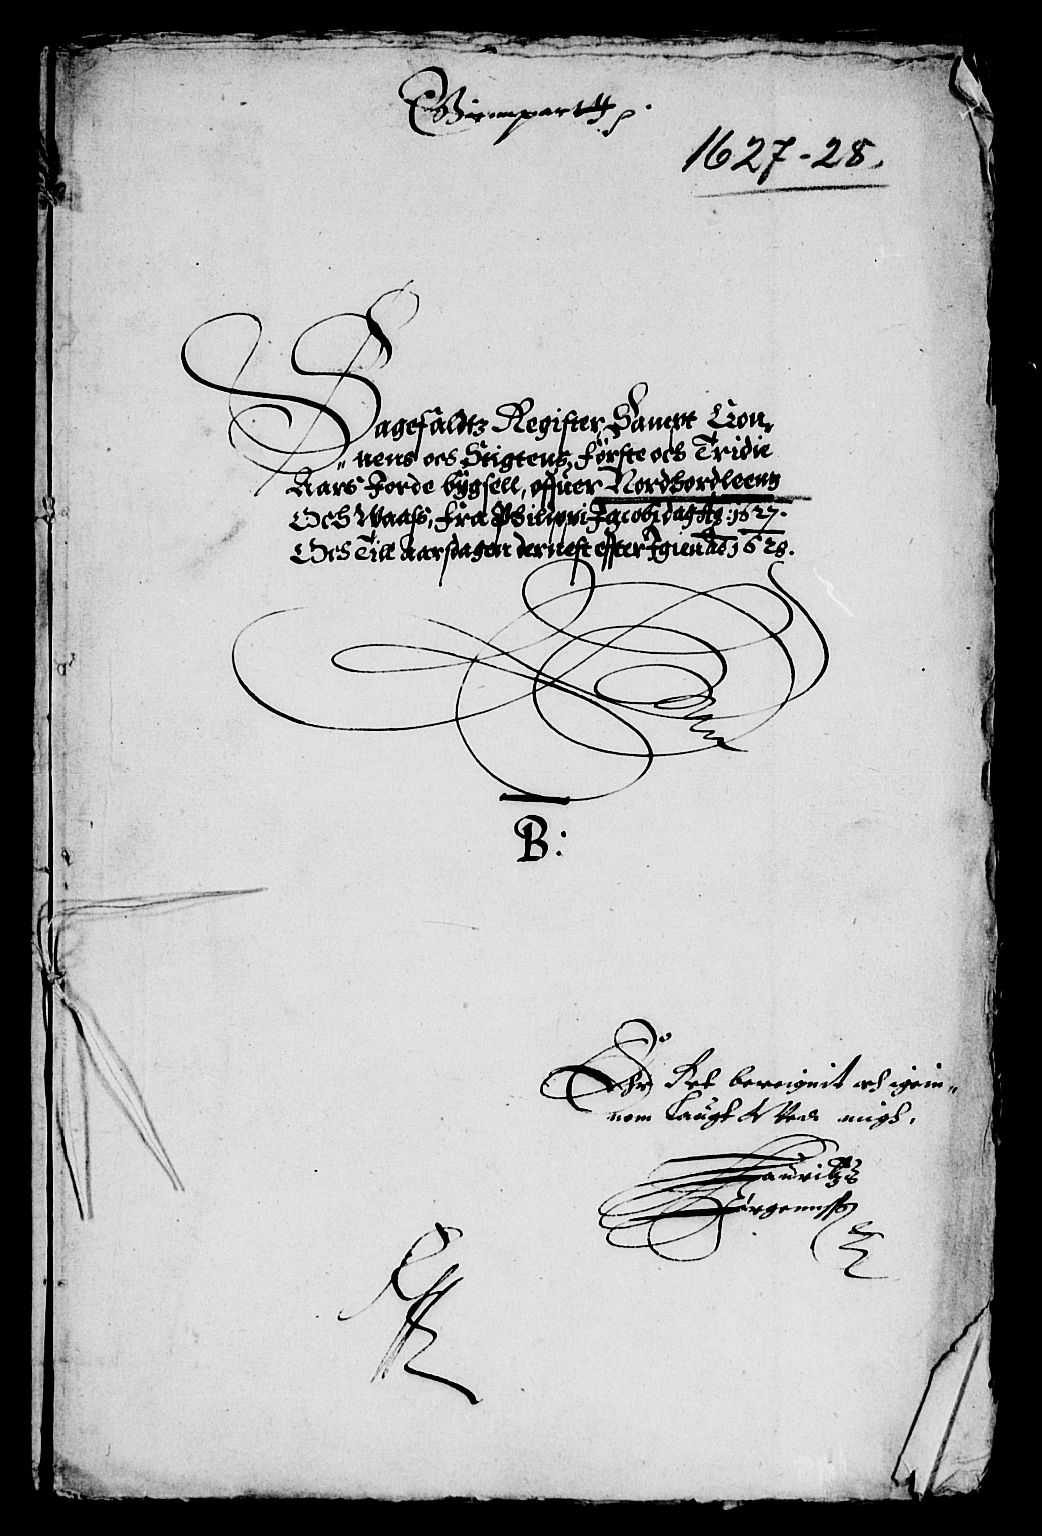 Gienpart
1627-28.
Sagefaldtz Register, Sampt Cron„
„nens och Stigtens, första och Tridie
Aars Jorde bygsell, offuer Nordhordleenn
Och Waass, fra Philippi Jacobi dag Ao: 1627.
Och Till Aarsdagen dernest effter Igien Ao 1628.
B:
Ehr Ret beregnit och igien„
nom laugt Wed migh.
Lauritz
Jørgennss